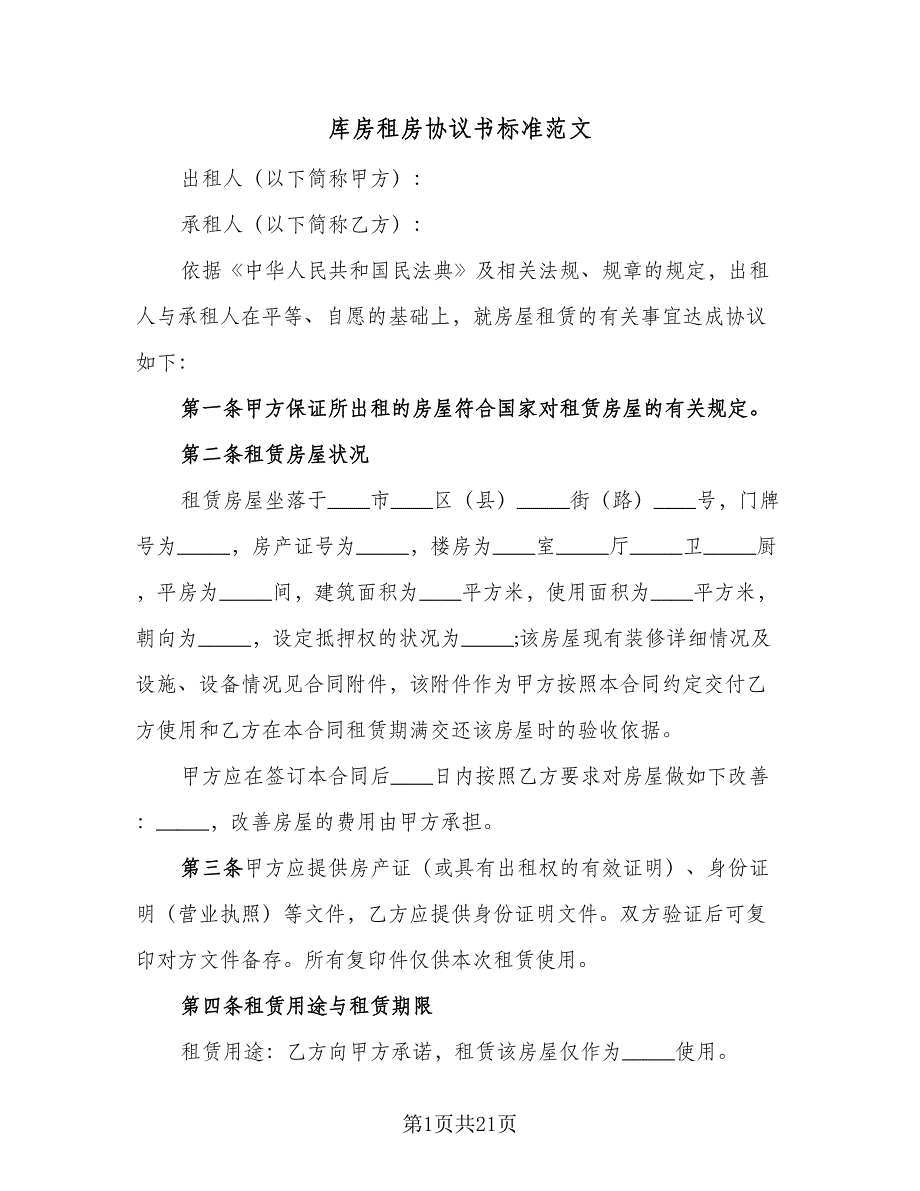 库房租房协议书标准范文
出租人（以下简称甲方）：
承租人（以下简称乙方）：
依据《中华人民共和国民法典》及相关法规、规章的规定，出租
人与承租人在平等、自愿的基础上，就房屋租赁的有关事宜达成协议
如下：
第一条甲方保证所出租的房屋符合国家对租赁房屋的有关规定。
第二条租赁房屋状况
租赁房屋坐落于____市____区（县）_____街（路）____号，门牌
号为_____，房产证号为_____，楼房为____室_____厅_____卫_____厨
，平房为_____间，建筑面积为____平方米，使用面积为____平方米，
朝向为_____，设定抵押权的状况为_____;该房屋现有装修详细情况及
设施、设备情况见合同附件，该附件作为甲方按照本合同约定交付乙
方使用和乙方在本合同租赁期满交还该房屋时的验收依据。
甲方应在签订本合同后____日内按照乙方要求对房屋做如下改善
：_____，改善房屋的费用由甲方承担。
第三条甲方应提供房产证（或具有出租权的有效证明）、身份证
明（营业执照）等文件，乙方应提供身份证明文件。双方验证后可复
印对方文件备存。所有复印件仅供本次租赁使用。
第四条租赁用途与租赁期限
租赁用途：乙方向甲方承诺，租赁该房屋仅作为_____使用。
第1页共21页